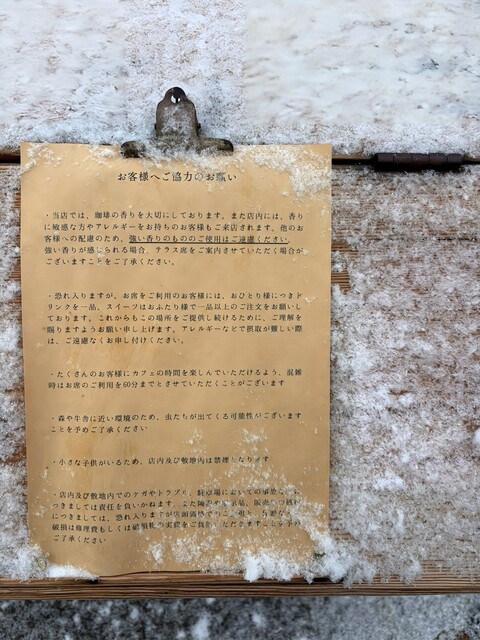 お客様へご協力のお願い
・当店では、珈琲の香りを大切にしております。また店内には、香り
に敏感な方やアレルギーをお持ちのお客様もご来店されます。他のお
客様への配慮のため、強い香りのもののご使用はご遠慮ください。
強い香りが感じられる場合、テラス席をご案内させていただく場合が
ございますことをご了承ください。
・恐れ入りますが、お席をご利用のお客様には、おひとり様につきド
リンクを一品、スイーツはおふたり様で一品以上のご注文をお願いし
ております。これからもこの場所をご提供し続けるために、ご理解を
賜りますようお願い申し上げます。アレルギーなどで摂取が難しい際
は、ご遠慮なくお申し付けください。
・たくさんのお客様にカフェの時間を楽しんでいただけるよう、混雑
時はお席のご利用を60分までとさせていただくことがございます
・森や牛舎に近い環境のため、虫たちが出てくる可能性がございます
ことを予めご了承ください
・小さな子供がいるため、店内及び敷地内は禁煙となります
・店内及び敷地内でのケガやトラブル、駐車場においての事故などに
つきましては責任を負いかねます。また
につきましては、恐れ入りますが店頭価格での
破損は修理費もしくは破損物の実費をご負担いただきますことを予め
ご了承ください